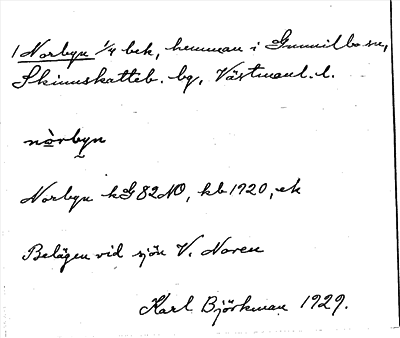 1 Norbyn 1/4 bek, hemman i Gunnilbo sn,
Skinnskatteb. bg, Västmanl. l.
nòrbyn
Norbyn kG82NO, kb 1720, ek
Belägen vid sjön V. Noren
Karl Björkman 1929.